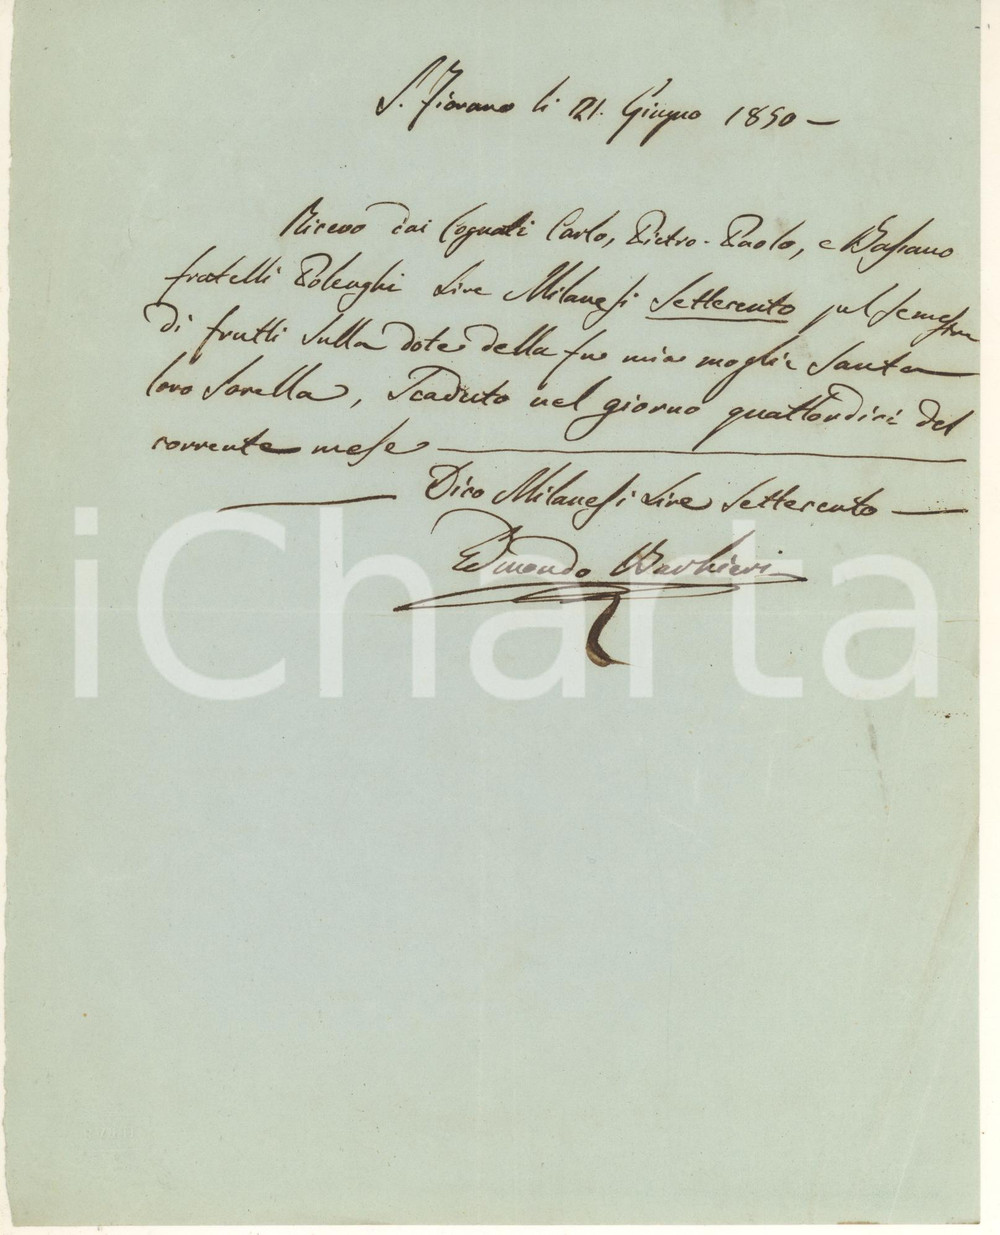 S. Fiorano li 21. Giugno 1850 —
Ricevo dai Cognati Carlo, Pietro-Paolo, e Bassano
fratelli Polenghi Lire Milanesi Settecento pel semestre
di frutti sulla dote della fu mia moglie Santa
loro Sorella, scaduto nel giorno quattordici del
corrente mese
Dico Milanesi Lire Settecento —
Edmondo Barbieri
iCharta